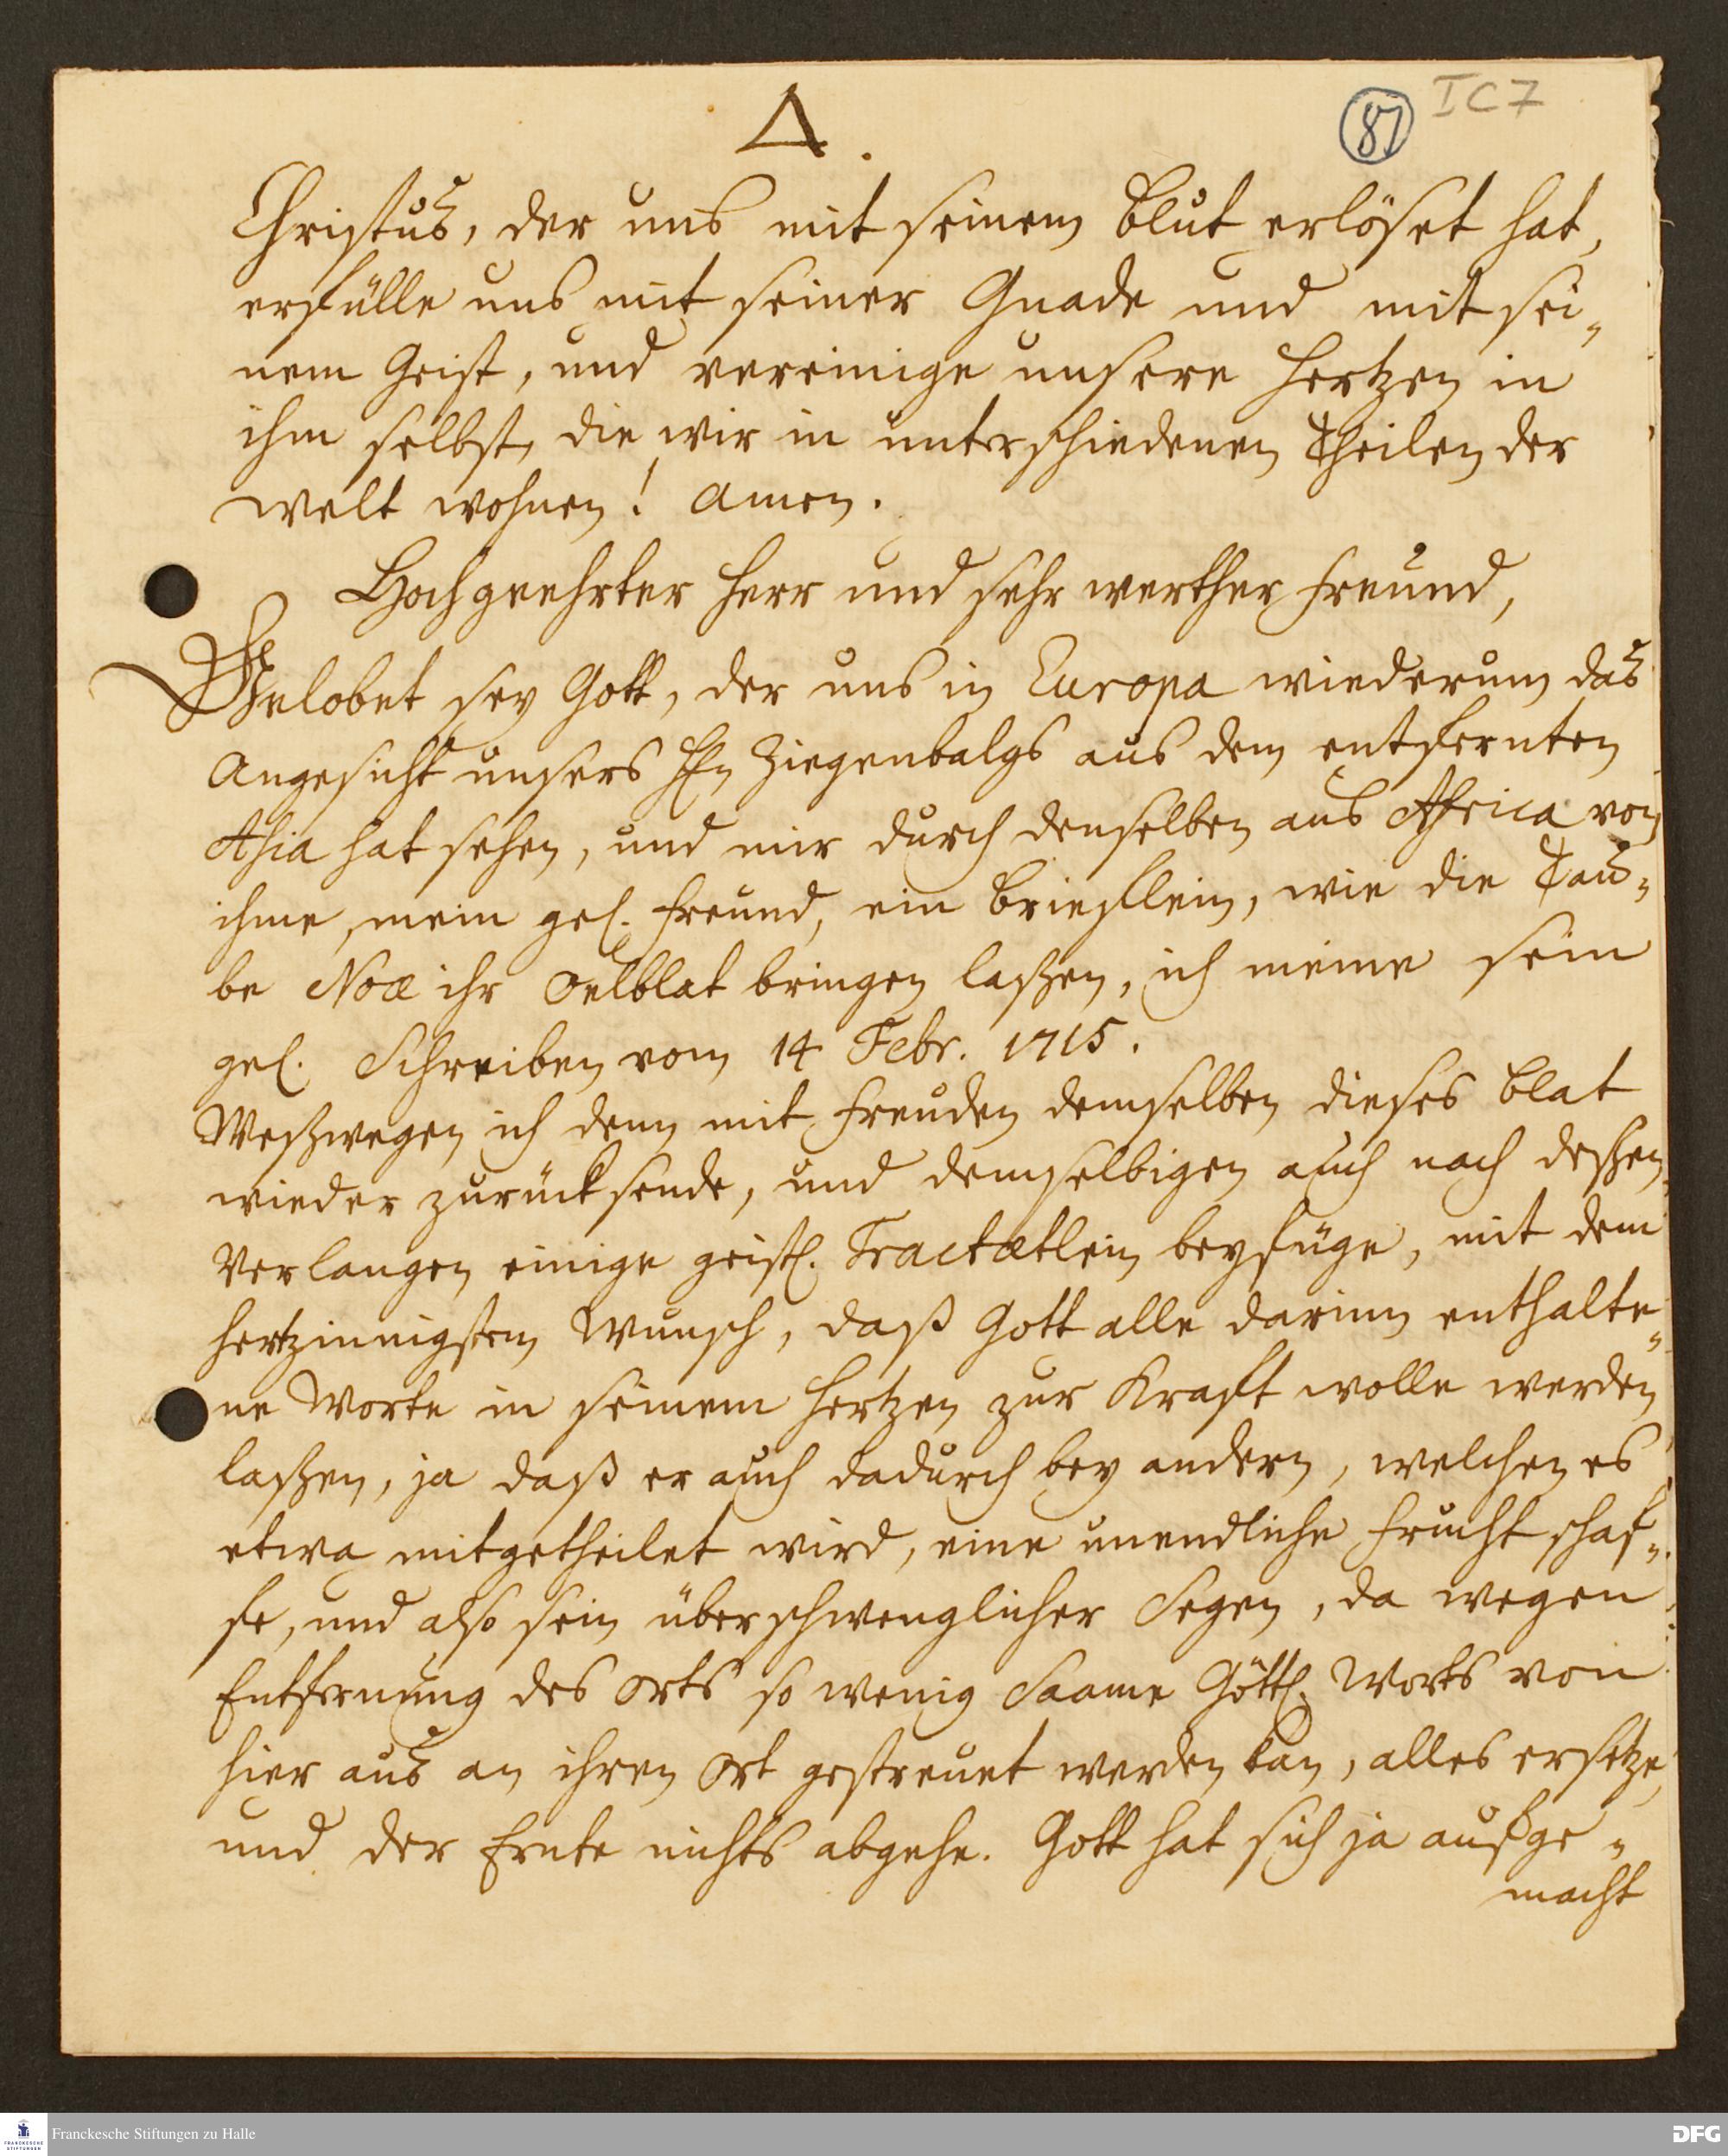 Δ.
87 I C 7
Christus, der uns mit seinem Blut erlöset hat,
erfülle uns mit seiner Gnade und mit sei„
nem Geist, und vereinige unsere Hertzen in
ihm selbst, die wir in unterschiedenen Theilen der
Welt wohnen! Amen.
Hochgeehrter Herr und sehr werther Freund,
Gelobet sey Gott, der uns in Europa wiederum das
Angesicht unsers Hn Ziegenbalgs aus dem entfernten
Asia hat sehen, und mir durch denselben aus Africa von
ihme, mein gel. Freund, ein Brieflein, wie die Tau„
be Noæ ihr Oelblat bringen laßen, ich meine sein
gel. Schreiben vom 14 Febr. 1715.
Weßwegen ich denn mit Freuden demselben dieses Blat
wieder zurück sende, und demselbigen auch nach deßen
Verlangen einige geistl. Tractætlein beyfüge, mit dem
hertzinnigsten Wunsch, daß Gott alle darinn enthalte„
ne Worte in seinem Hertzen zur Kraft wolle werden
laßen, ja daß er auch dadurch bey andern, welchen es
etwa mitgetheilet wird, eine unendliche Frucht schaf„
fe, und also sein überschwenglicher Segen, da wegen
Entfernung des Orts so wenig Saame Göttl. Worts von
hier aus an ihren Ort gestreuet werden kan, alles ersetze,
und der Ernte nichts abgehe. Gott hat sich ja außge„
macht
Franckesche Stiftungen zu Halle
FRANCKESCHE
STIFTUNGEN
DFG